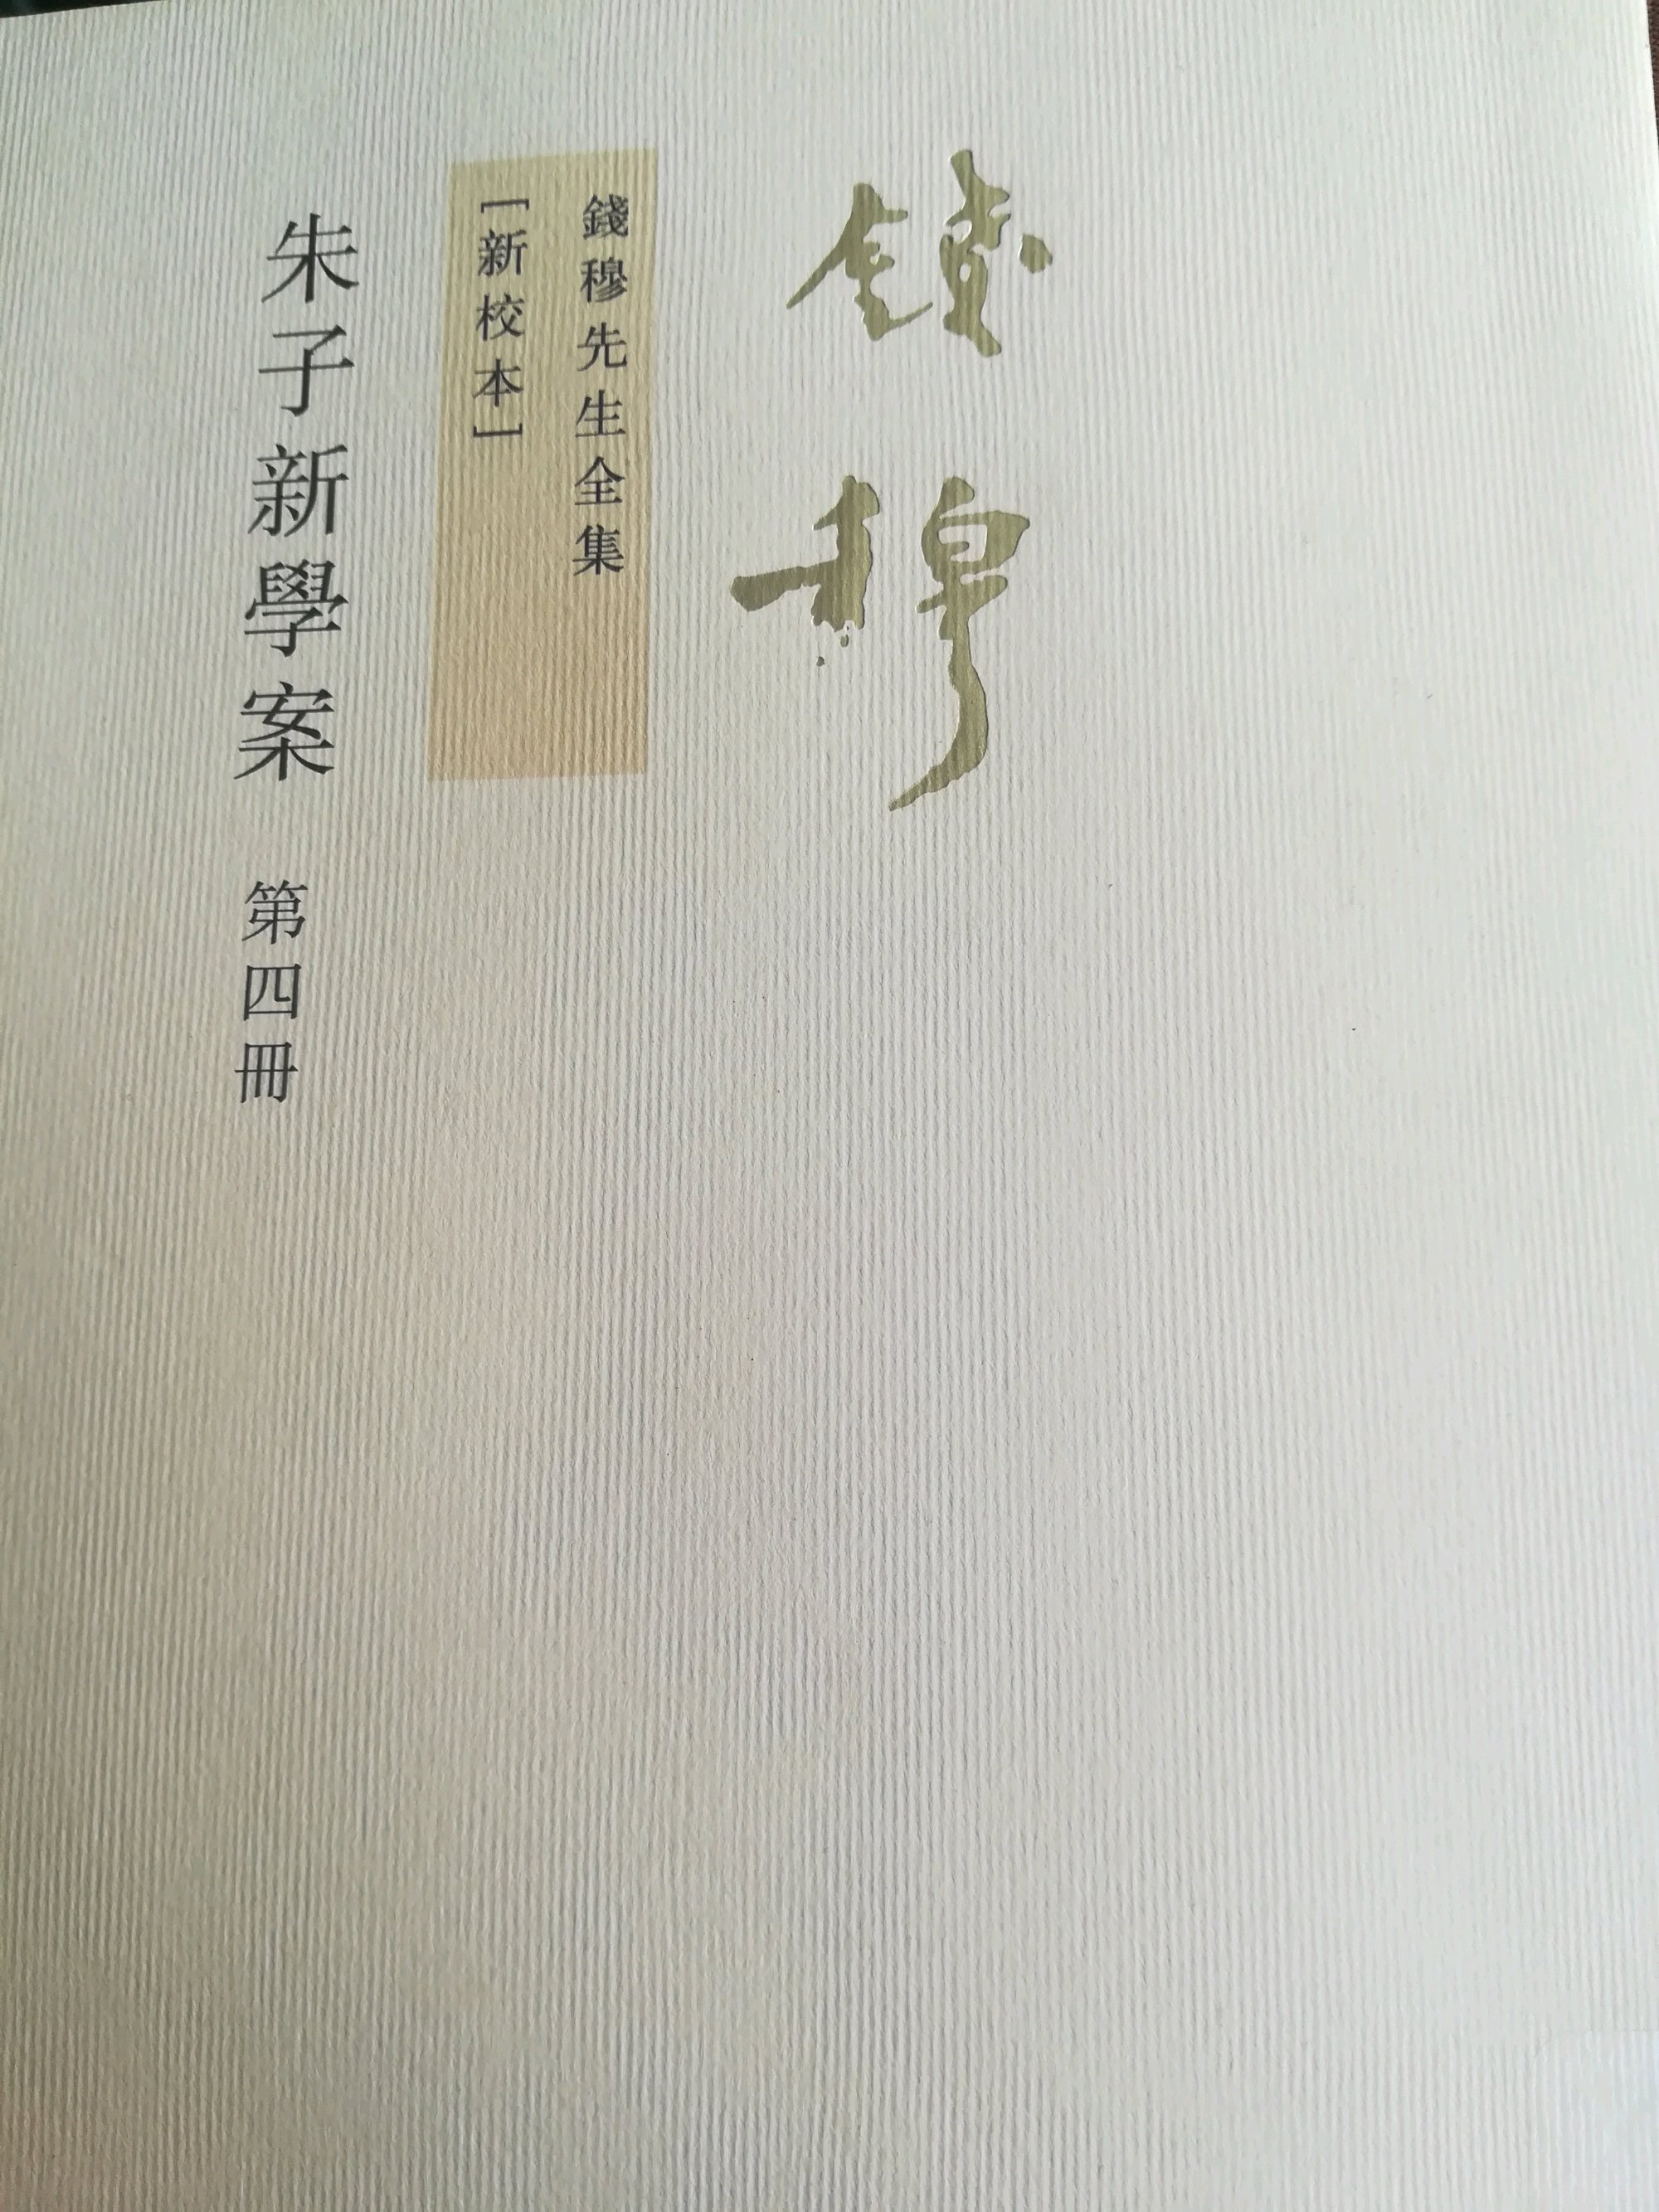 錢穆
錢穆先生全集
[新校本]
朱子新學案 第四冊